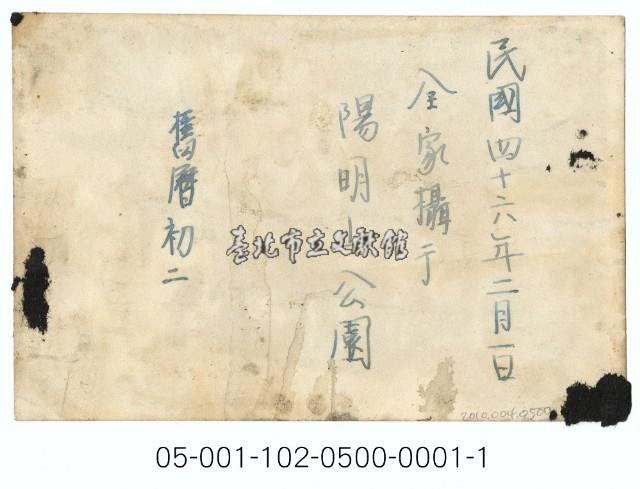 民國四十六年二月一日
全家攝于
陽明山公園
舊曆初二
臺北市立文獻館
2010.004.0500
05-001-102-0500-0001-1